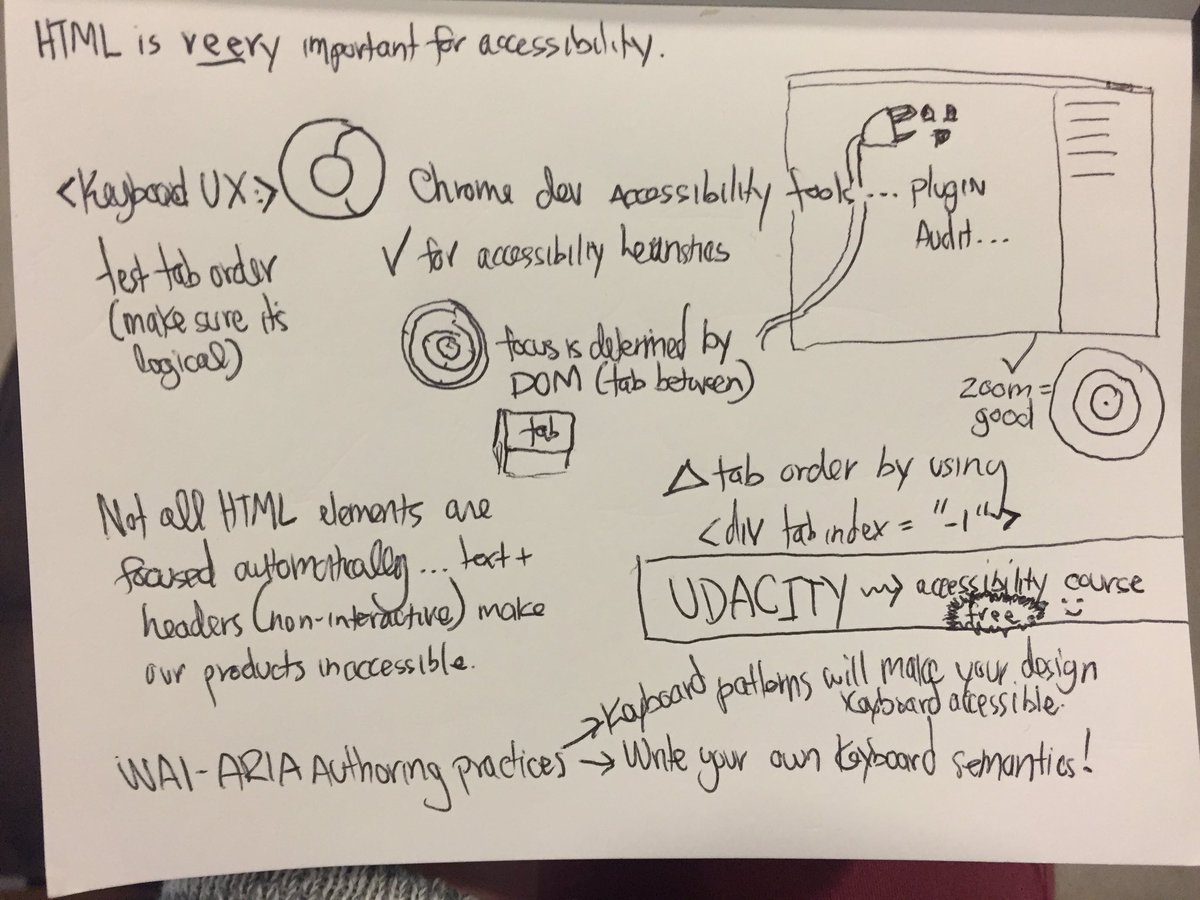 HTML is veery important for accessibility.
<Keyboard UX:>
test tab order
(make sure it's
logical)
Chrome dev Accessibility tools... plugin
Audit...
✓ for accessibiliy heuristics
focus is determined by
DOM (tab between)
tab
zoom =
good
Not all HTML elements are
focused automatically... text +
headers (non-interactive) make
our products inaccessible.
Δ tab order by using
<div tabindex = "-1">
UDACITY → accessibility course
free :)
WAI-ARIA Authoring practices
→ Keyboard patterns will make your design
keyboard accessible.
→ Write your own keyboard semantics!